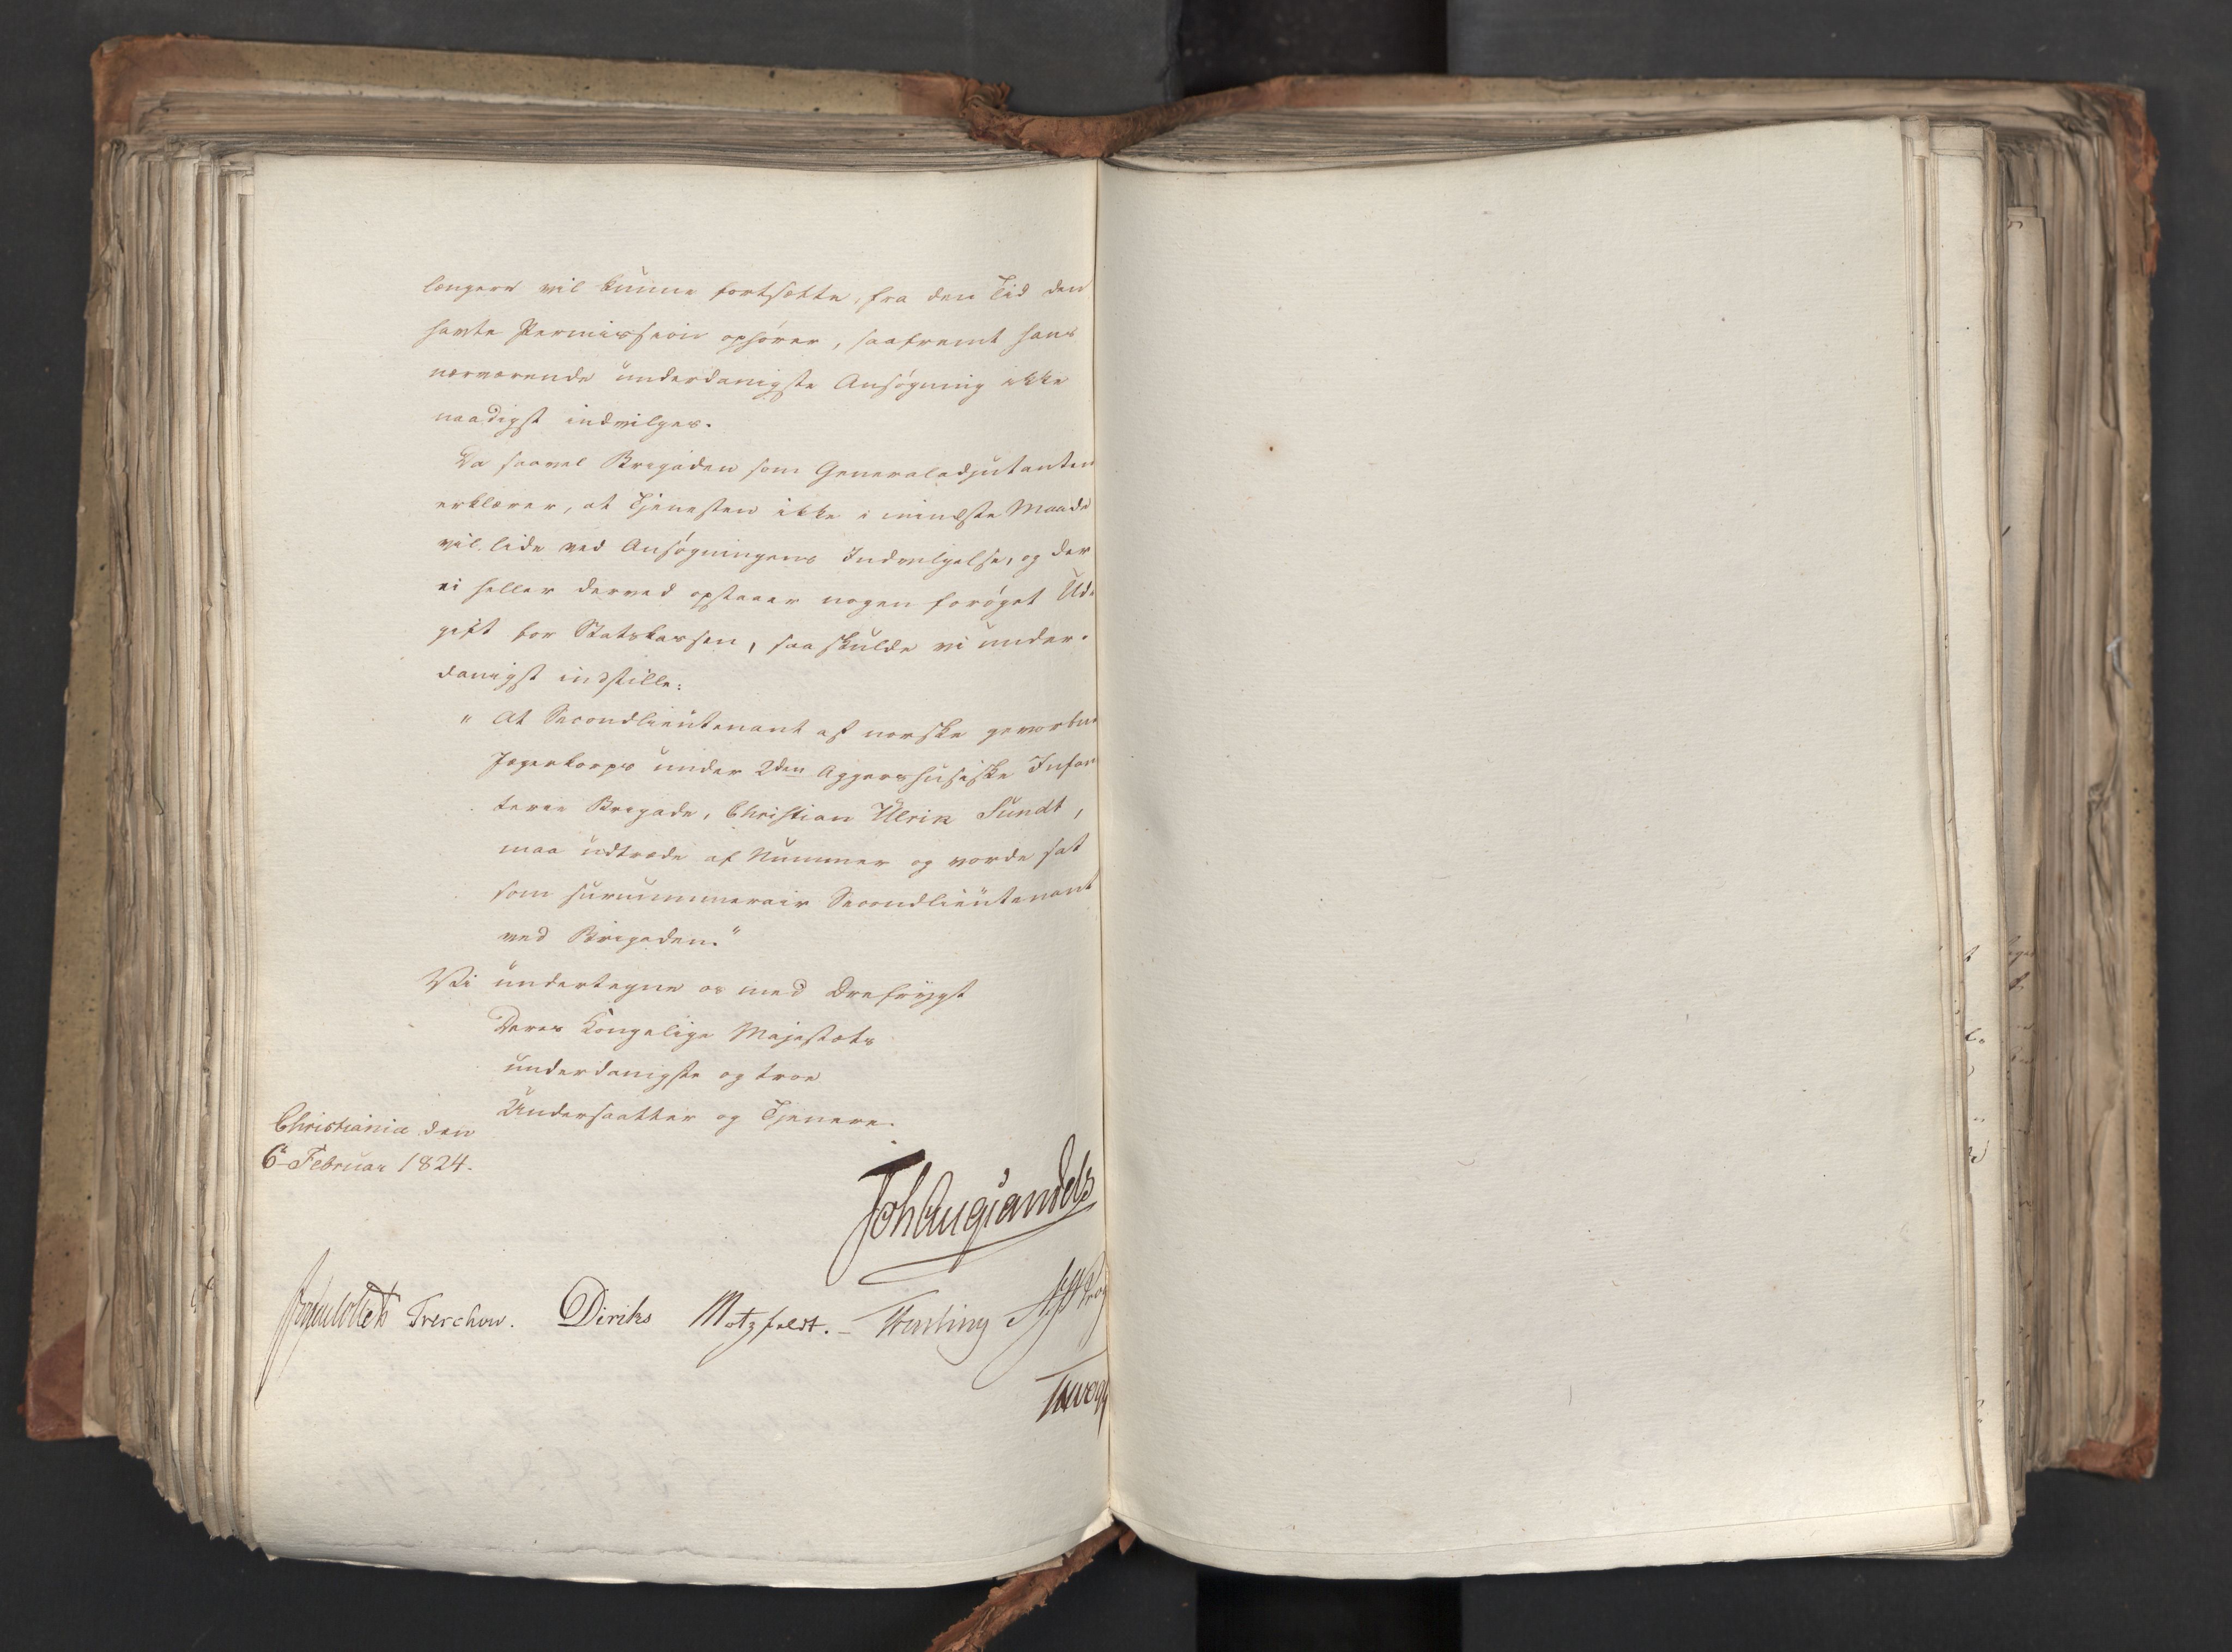 længere vil kunne fortsætte, fra den Tid den
havte Permission ophører, saafremt hans
nærværende underdanigste Ansøgning ikke
naadigst indvilges.
Da saavel Brigaden som Generaladjutanten
erklærer, at Tjenesten ikke i mindste Maade
vil lide ved Ansøgningens Indvilgelse, og der
ei heller derved opstaaer nogen forøget Ud-
gift for Statskassen, saa skulde vi under-
danigst indstille:
" At Secondlieutenant af norske gevorbne
Jægerkorps under 2den Aggershusiske Infan
terie Brigade, Christian Ulrik Sundt,
maa udtræde af Nummer og vorde sat
som surnummerair Secondlieutenant
ved Brigaden."
Vi undertegne os med Ærefrygt
Deres Kongelige Majestæts
underdanigste og troe
Undersaatter og Tjenere.
Christiania den
6 Februar 1824.
Joh Aug Sandels
Jonas Collett Treschow. Diriks Motzfeldt.